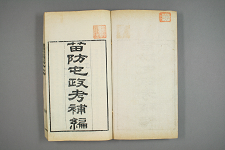 苗防屯政考補編